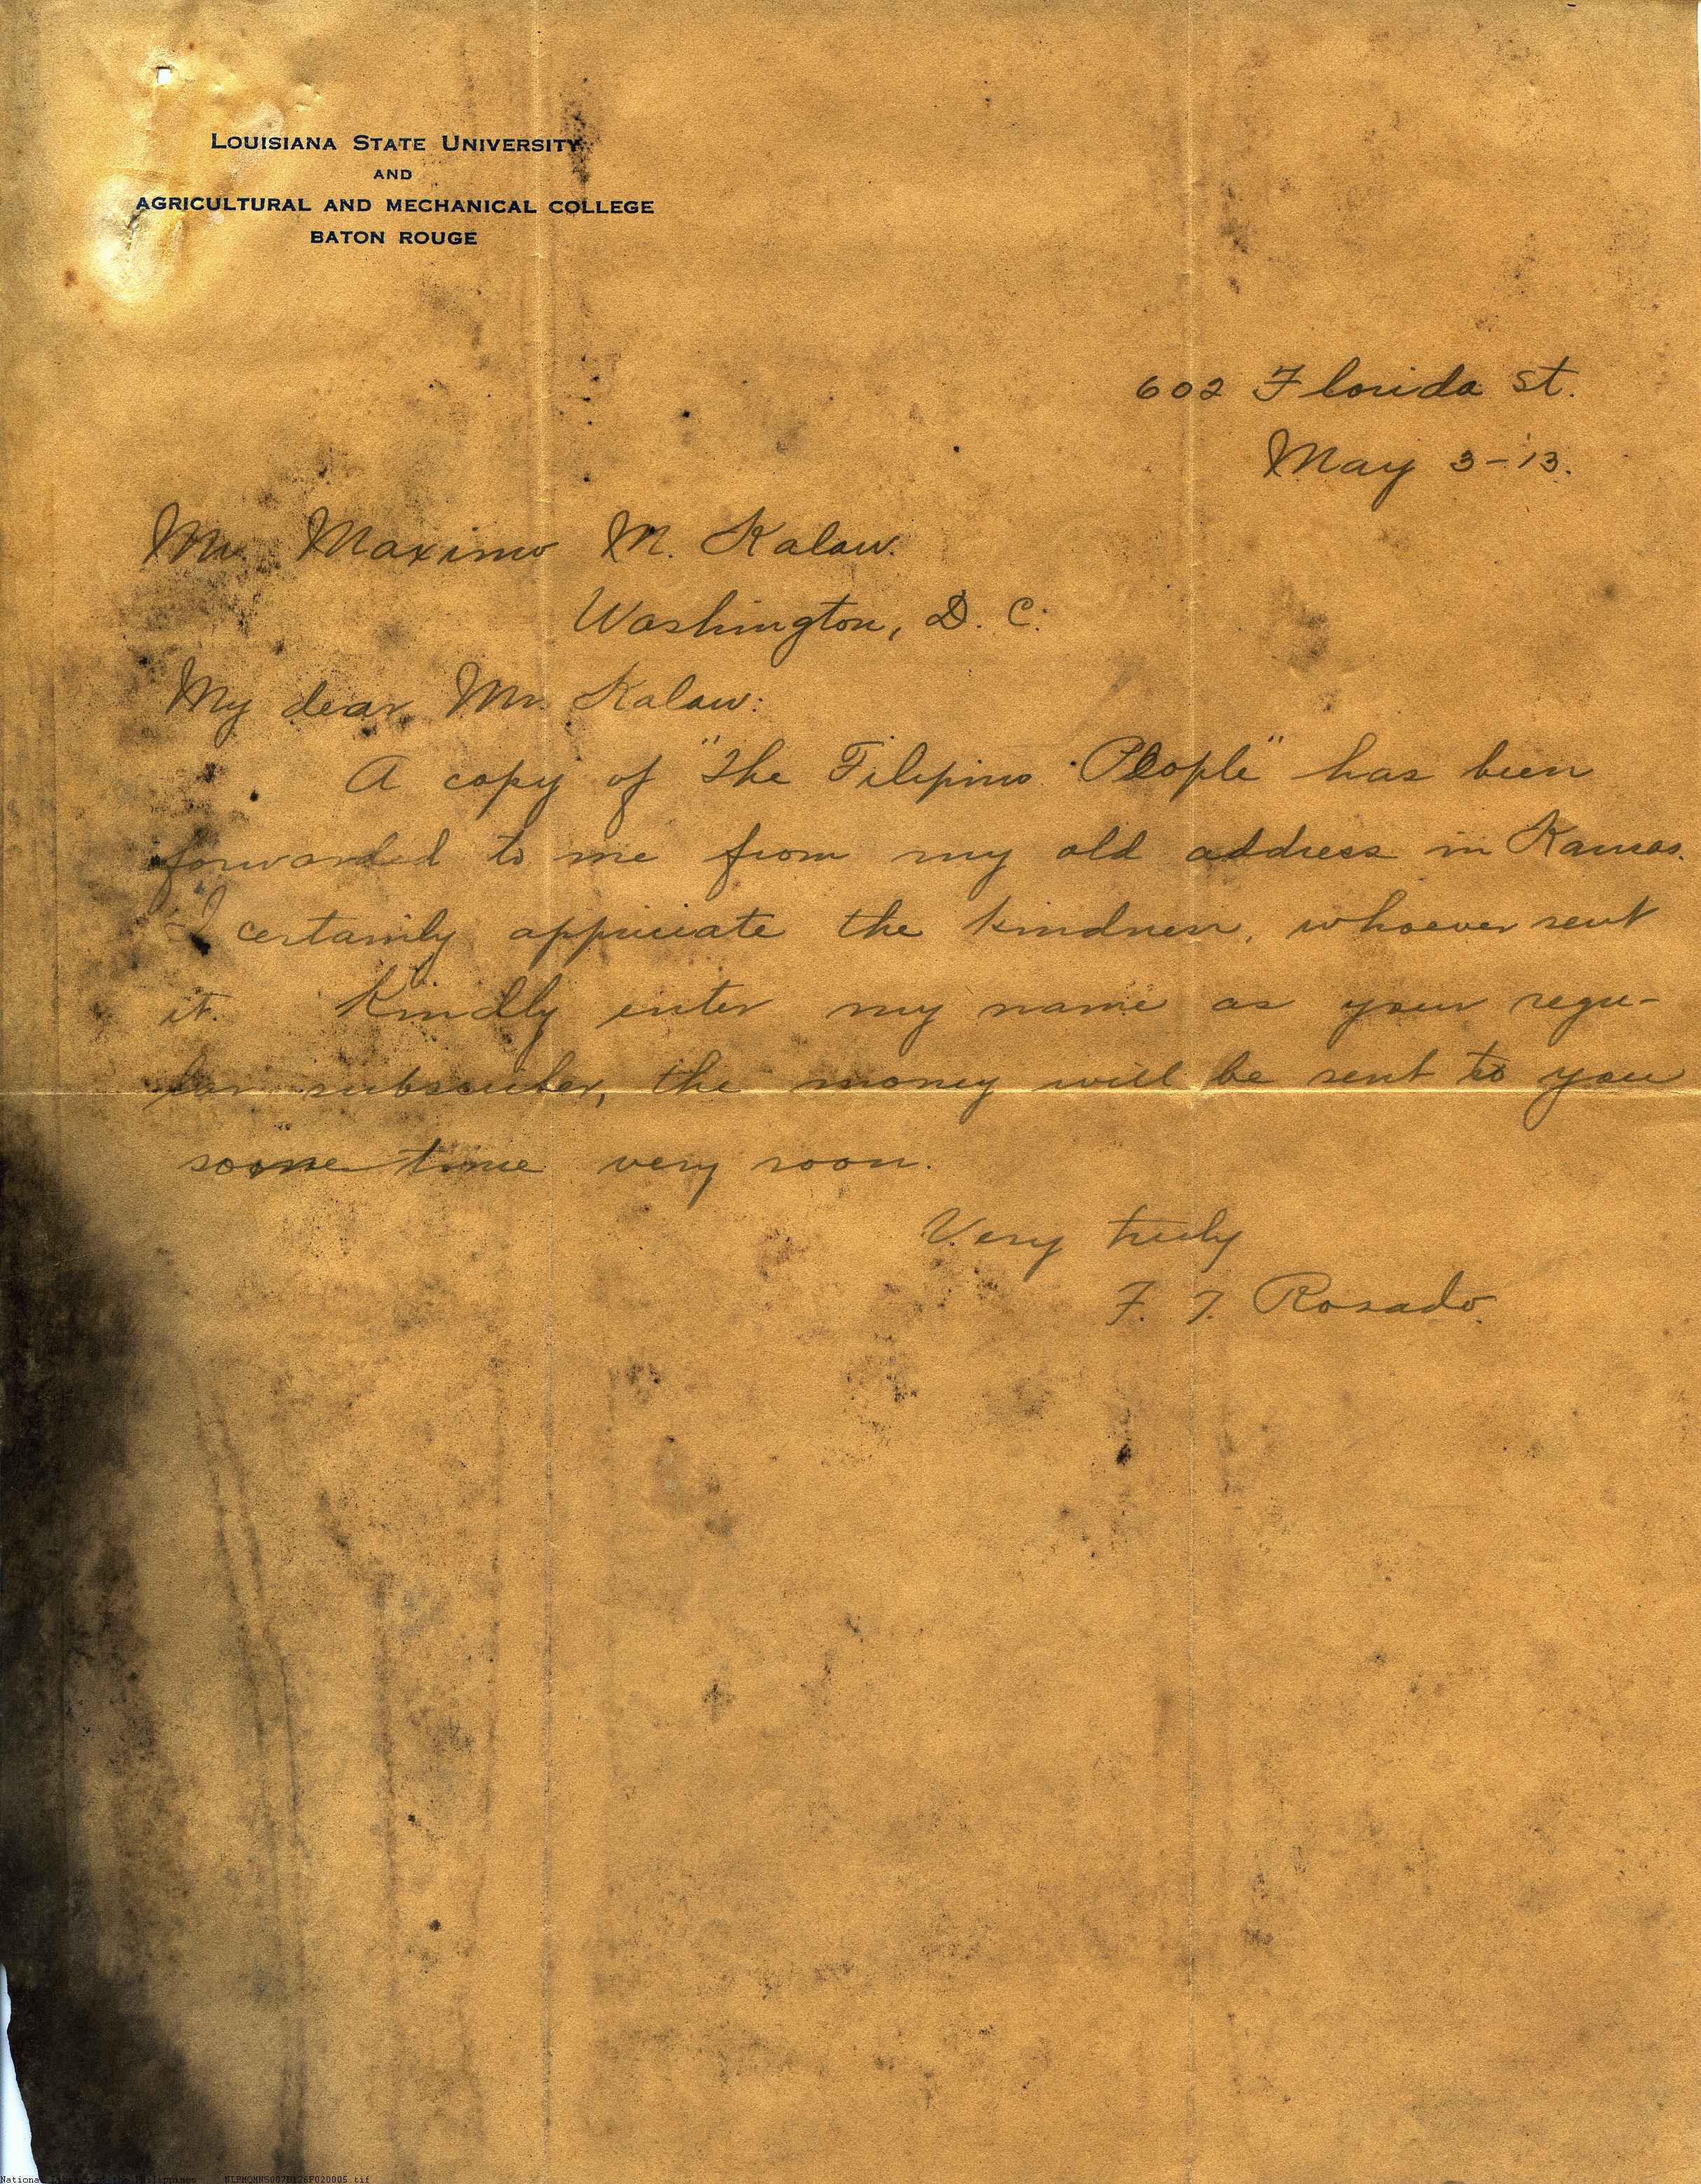 LOUISIANA STATE UNIVERSITY
AND
AGRICULTURAL AND MECHANICAL COLLEGE
BATON ROUGE
602 Florida St.
May 3-'13.
Mr. Maximo M. Kalaw.
Washington, D. C.
My dear Mr. Kalaw:
A copy of "The Filipino People" has been
forwarded to me from my old address in Kansas.
I certainly appriciate the kindness, whoever sent
it. Kindly enter my name as your regu-
lar subscriber, the money will be sent to you
some time very soon.
Very truly
F. T. Rosado.
National Library of the Philippines NLPMQMNS007B026F020005.tif